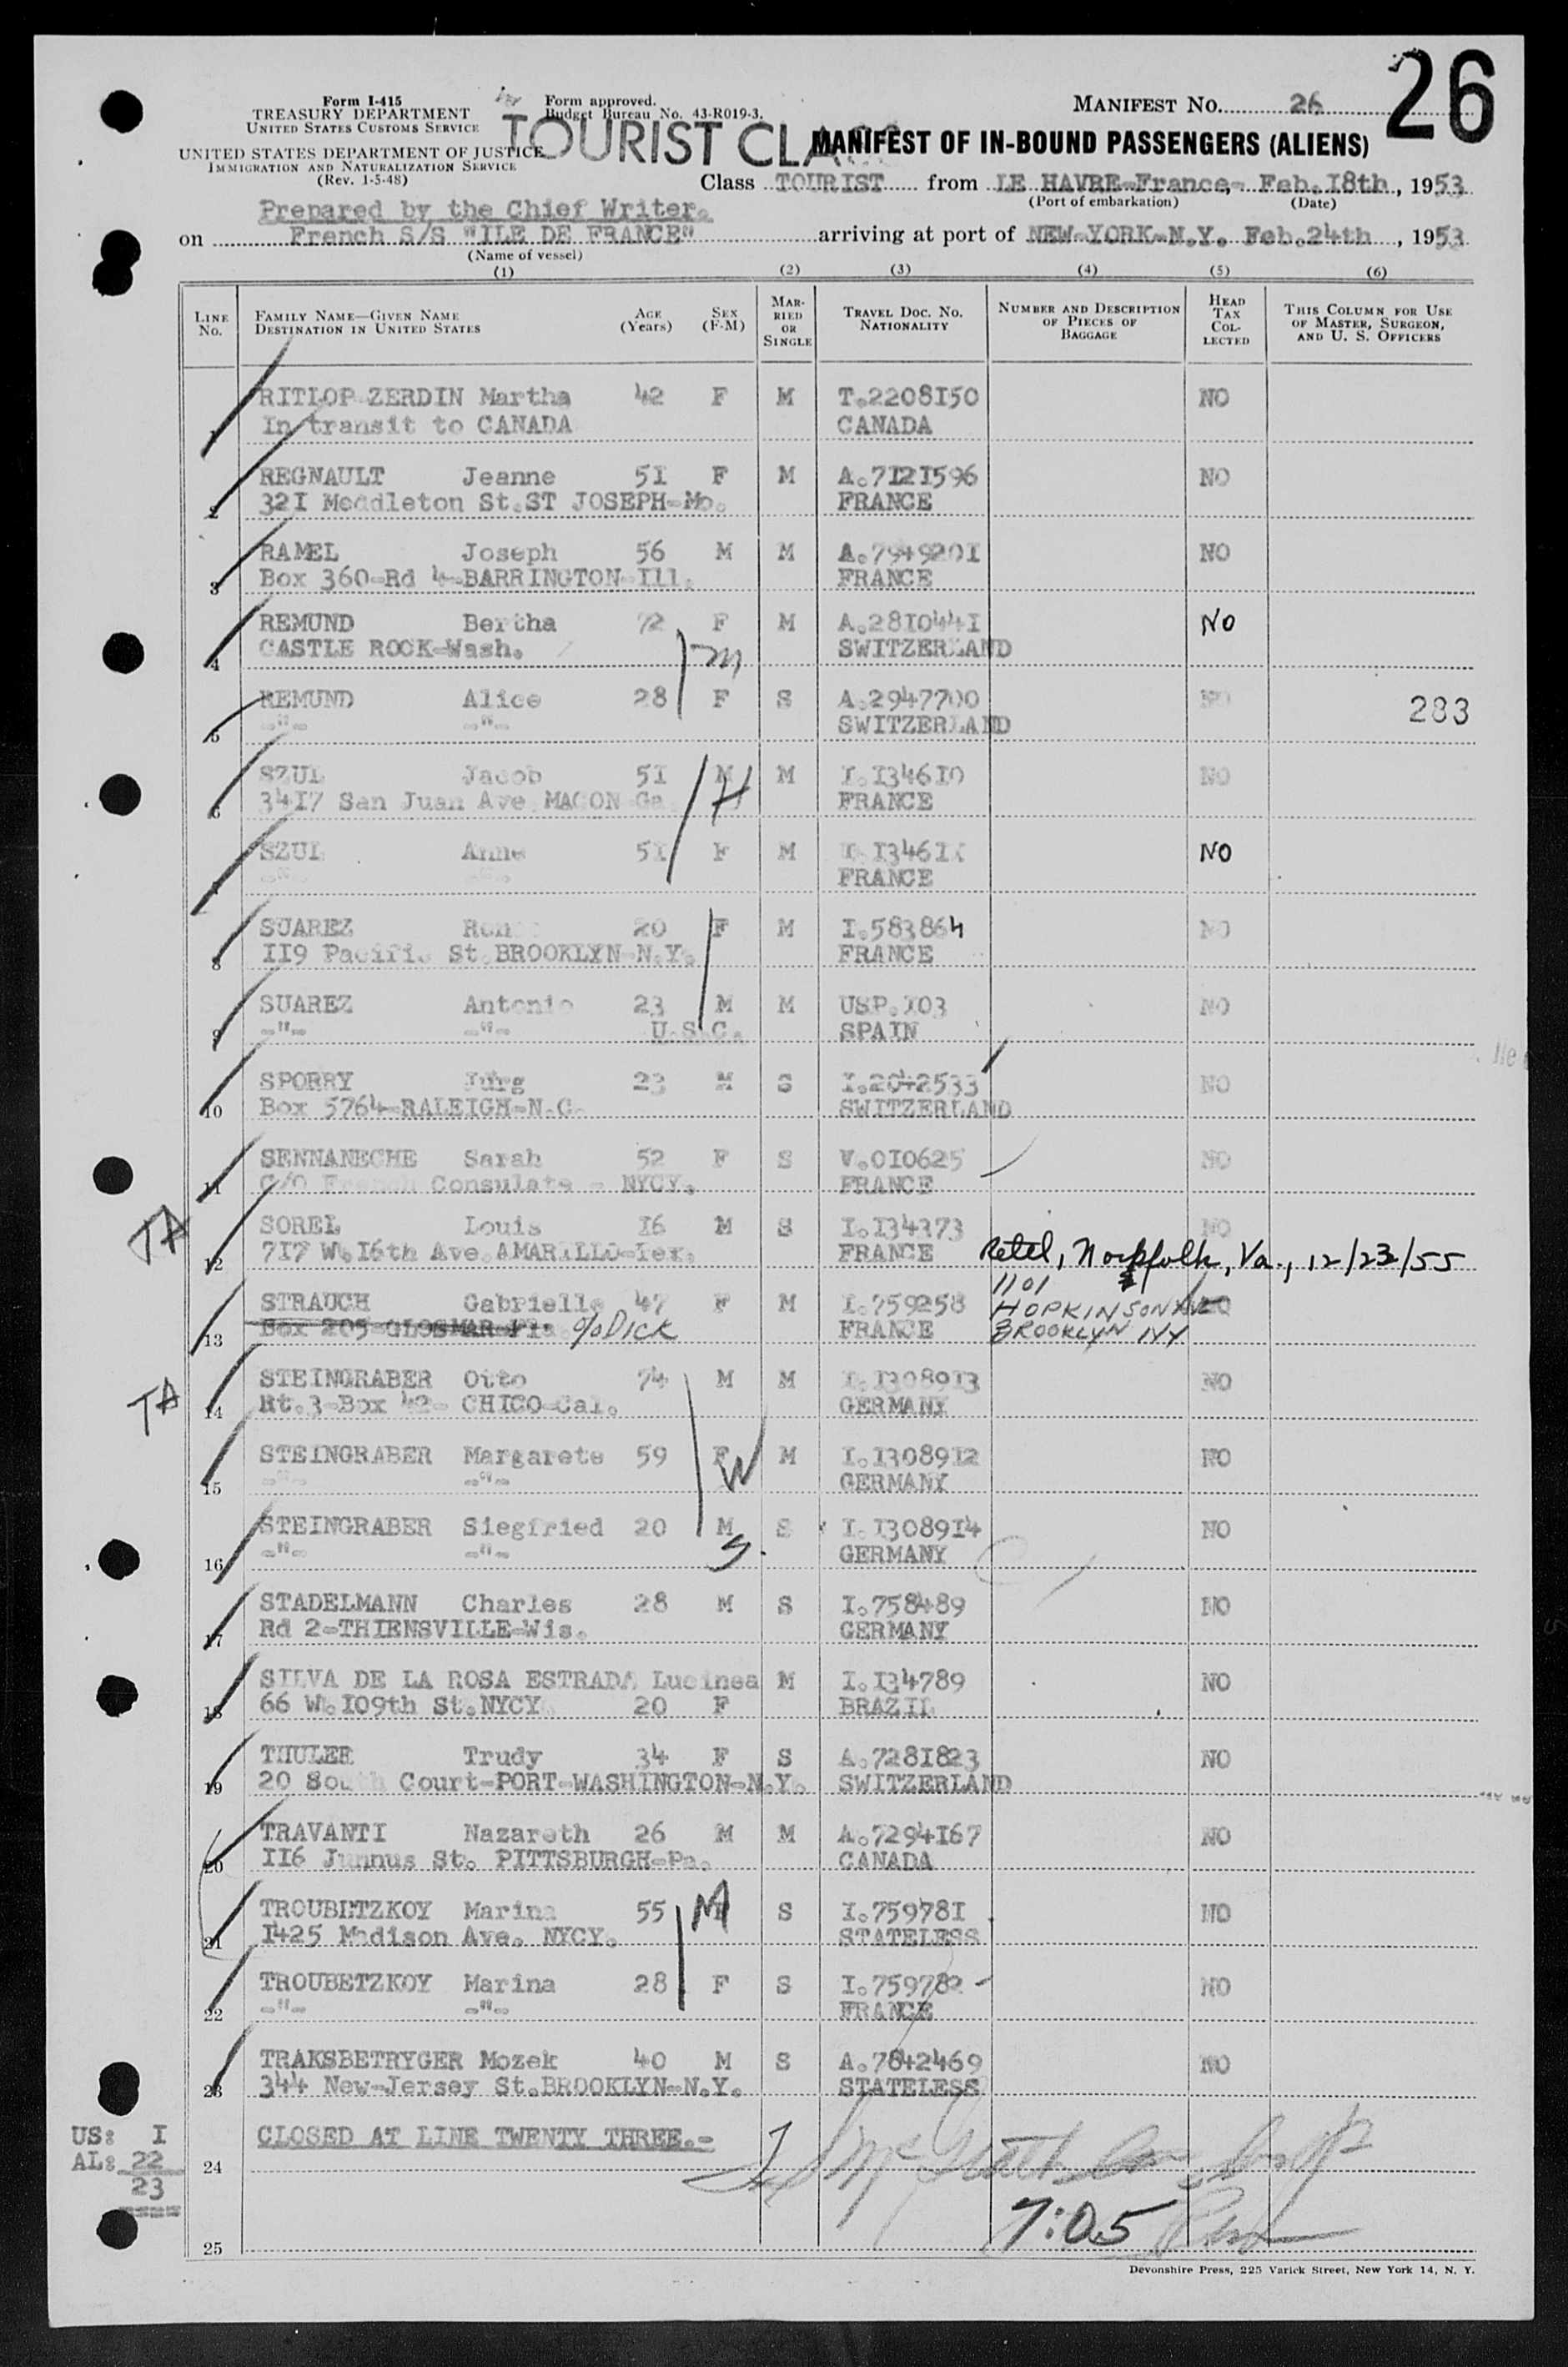 26
Form I-415
TREASURY DEPARTMENT
UNITED STATES CUSTOMS SERVICE
UNITED STATES DEPARTMENT OF JUSTICE
IMMIGRATION AND NATURALIZATION SERVICE
(Rev. 1-5-48)
Form approved.
Budget Bureau No. 43-R019-3.
TOURIST CLA
MANIFEST NO. 26
MANIFEST OF IN-BOUND PASSENGERS (ALIENS)
Class TOURIST from LE HAVRE-France- Feb.18th, 1953
(Port of embarkation) (Date)
Prepared by the Chief Writer.
on French S/S "ILE DE FRANCE" arriving at port of NEW-YORK-N.Y. Feb.24th, 1953
(Name of vessel)
(1) (2) (3) (4) (5) (6)
LINE NO. FAMILY NAME—GIVEN NAME DESTINATION IN UNITED STATES AGE (Years) SEX (F-M) MARRIED OR SINGLE TRAVEL DOC. NO. NATIONALITY NUMBER AND DESCRIPTION OF PIECES OF BAGGAGE HEAD TAX COLLECTED THIS COLUMN FOR USE OF MASTER, SURGEON, AND U. S. OFFICERS
RITLOP ZERDIN Martha 42 F M T.2208I50 NO
1 In transit to CANADA CANADA
REGNAULT Jeanne 5I F M A.7I2I596 NO
2 32I Meddleton St.ST JOSEPH-Mo. FRANCE
RAMEL Joseph 56 M M A.794920I NO
3 Box 360-Rd 4-BARRINGTON-Ill. FRANCE
REMUND Bertha 72 F M A.28I044I NO
4 CASTLE ROCK-Wash. SWITZERLAND
REMUND Alice 28 F S A.2947700 NO 283
5 -"- -"- SWITZERLAND
SZUL Jacob 5I M M I.I346I0 NO
6 34I7 San Juan Ave MACON Ga FRANCE
H
SZUL Anna 5I F M NO
7 -"- -"- FRANCE
SUAREZ 20 F M I.583864 NO
8 II9 Pacific St.BROOKLYN-N.Y. FRANCE
SUAREZ Antonio 23 M M USP.I03 NO
9 -"- -"- U.S.C. SPAIN
SPORRY Jürg 23 M S I.2042533 NO
10 Box 5764-RALEIGH-N.C. SWITZERLAND
SENNANECHE Sarah 52 F S V.0I0625 NO
11 C/O French Consulate - NYCY. FRANCE
TA
SOREL Louis I6 M S I.I34373 NO
12 7I7 W.I6th Ave.AMARILLO-Tex. FRANCE Retd, Norfolk, Va., 12/23/55
STRAUCH Gabrielle 47 F M I.759258 1101 HOPKINSON AVE
13 Box 205 c/o DICK FRANCE BROOKLYN NY
TA
STEINGRABER Otto 74 M M I.I3089I3 NO
14 Rt.3-Box 42- CHICO-Cal. GERMANY
STEINGRABER Margarete 59 F M I.I3089I2 NO
15 -"- -"- W GERMANY
STEINGRABER Siegfried 20 M S I.I3089I4 NO
16 -"- -"- S. GERMANY
STADELMANN Charles 28 M S I.758489 NO
17 Rd 2-THIENSVILLE-Wis. GERMANY
SILVA DE LA ROSA ESTRADA Lucinea M I.I34789 NO
18 66 W.I09th St.NYCY 20 F BRAZIL
THULER Trudy 34 F S A.728I823 NO
19 20 South Court-PORT-WASHINGTON-N.Y. SWITZERLAND
TRAVANTI Nazareth 26 M M A.7294I67 NO
20 II6 Junnus St. PITTSBURGH-Pa. CANADA
TROUBETZKOY Marina 55 M S I.75978I NO
21 I425 Madison Ave. NYCY. STATELESS
TROUBETZKOY Marina 28 F S I.759782 NO
22 -"- -"- FRANCE
TRAKSBETRYGER Mozek 40 M S A.7842469 NO
23 344 New-Jersey St.BROOKLYN-N.Y. STATELESS
US: I
AL: 22
23
CLOSED AT LINE TWENTY THREE.-
24
7:05
25
Devonshire Press, 225 Varick Street, New York 14, N. Y.